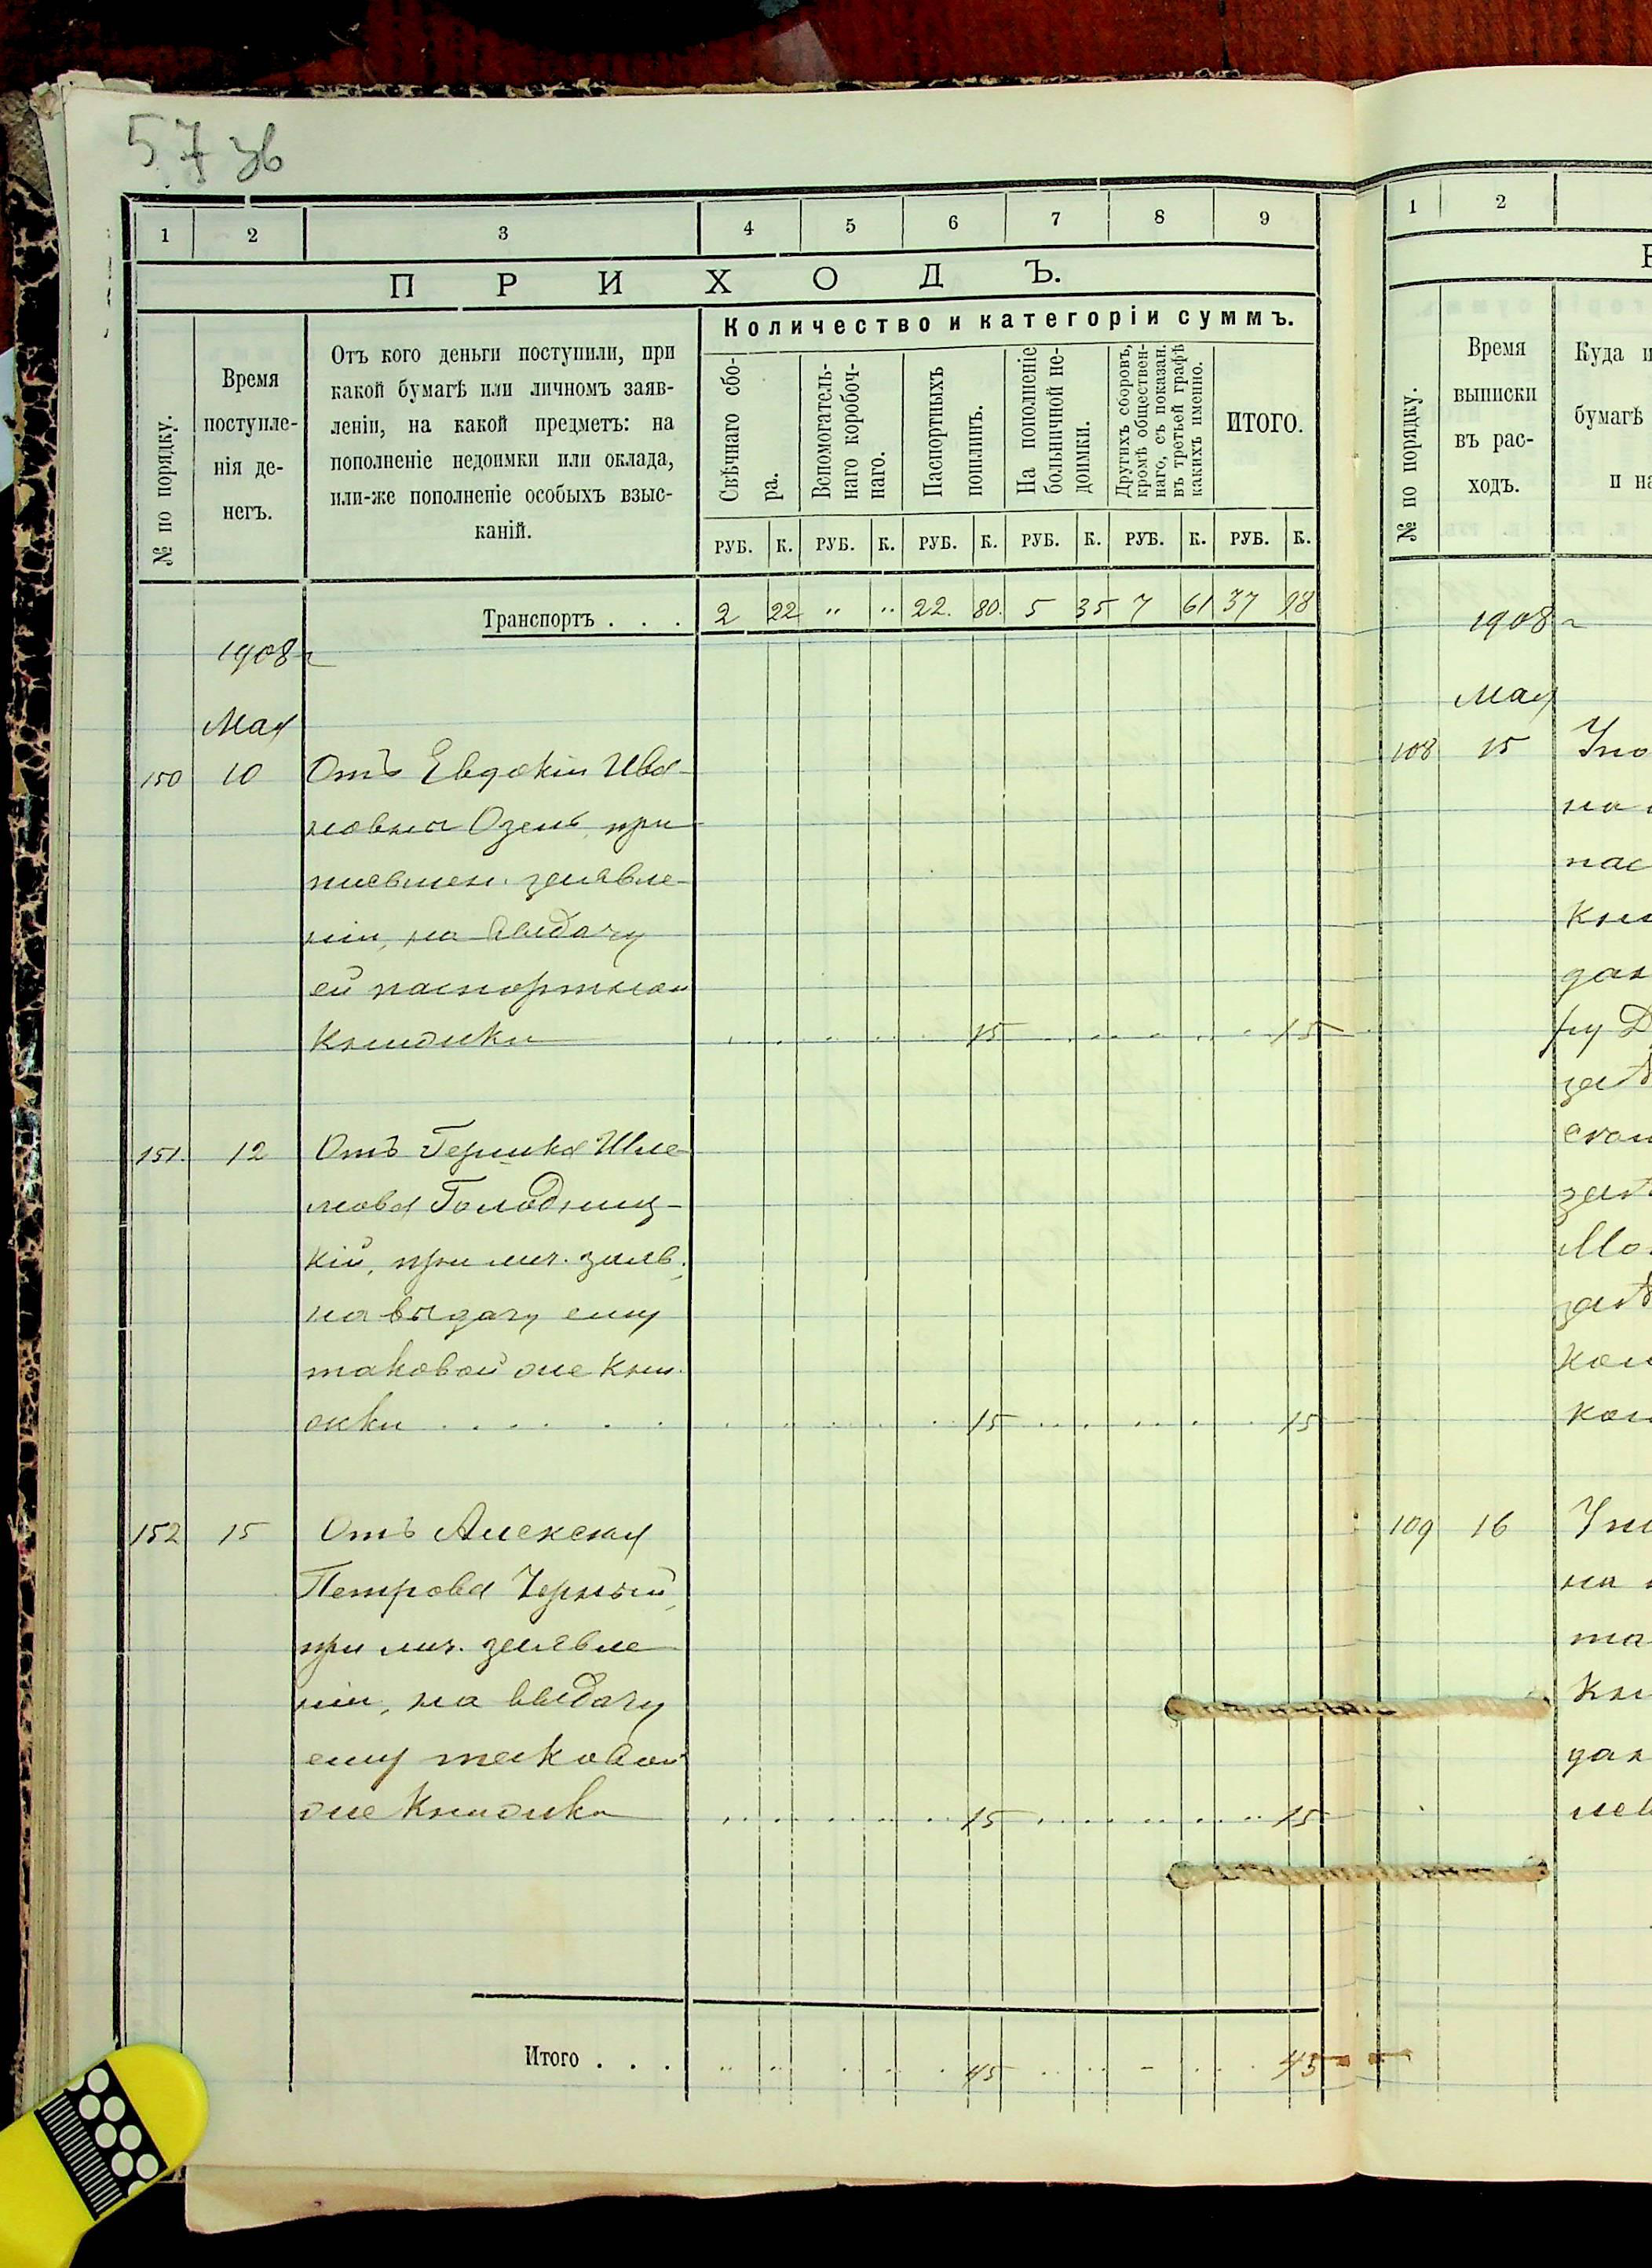 57 зв
1 2 3 4 5 6 7 8 9
ПРИХОДЪ.
№ по порядку.
Время
поступле-
нія де-
негъ.
Отъ кого деньги поступили, при
какой бумагѣ или личномъ заяв-
леніи, на какой предметъ: на
пополненіе недоимки или оклада,
или-же пополненіе особыхъ взыс-
каній.
Количество и категоріи суммъ.
Свѣчнаго сбо-
ра.
Вспомогатель-
наго коробоч-
наго.
Паспортныхъ
пошлинъ.
На пополненіе
больничной не-
доимки.
Другихъ сборовъ,
кромѣ обществен-
наго, съ показан.
въ третьей графѣ
какихъ именно.
ИТОГО.
РУБ. К. РУБ. К. РУБ. К. РУБ. К. РУБ. К. РУБ. К.
Транспортъ . . . 2 22 " " 22. 80. 5 35 7 61 37 98
1908 г
Мая
150 10 Отъ Евдокіи Ива-
новна Озенъ, при
письмен. заявле-
ніи, на выдачу
ей паспортной
книжки 15 15
151. 12 Отъ Гершка Шле-
мова Голодниц-
кій, при лич. заяв.,
на выдачу ему
таковой же кни-
жки . . . . . 15 15
152 15 Отъ Алексея
Петрова Черный,
при лич. заявле
ніи, на выдачу
ему таковой
же книжки 15 15
Итого . . . 45 45
1 2
№ по порядку.
Время
выписки
въ рас-
ходъ.
Куда и
бумагѣ
и на
1908 г
Мая
108 15 Упо
на
пас
Кни
дан
ру Д
за №
зат
Мо
за №
кол
109 16
на
та
Кни
дан